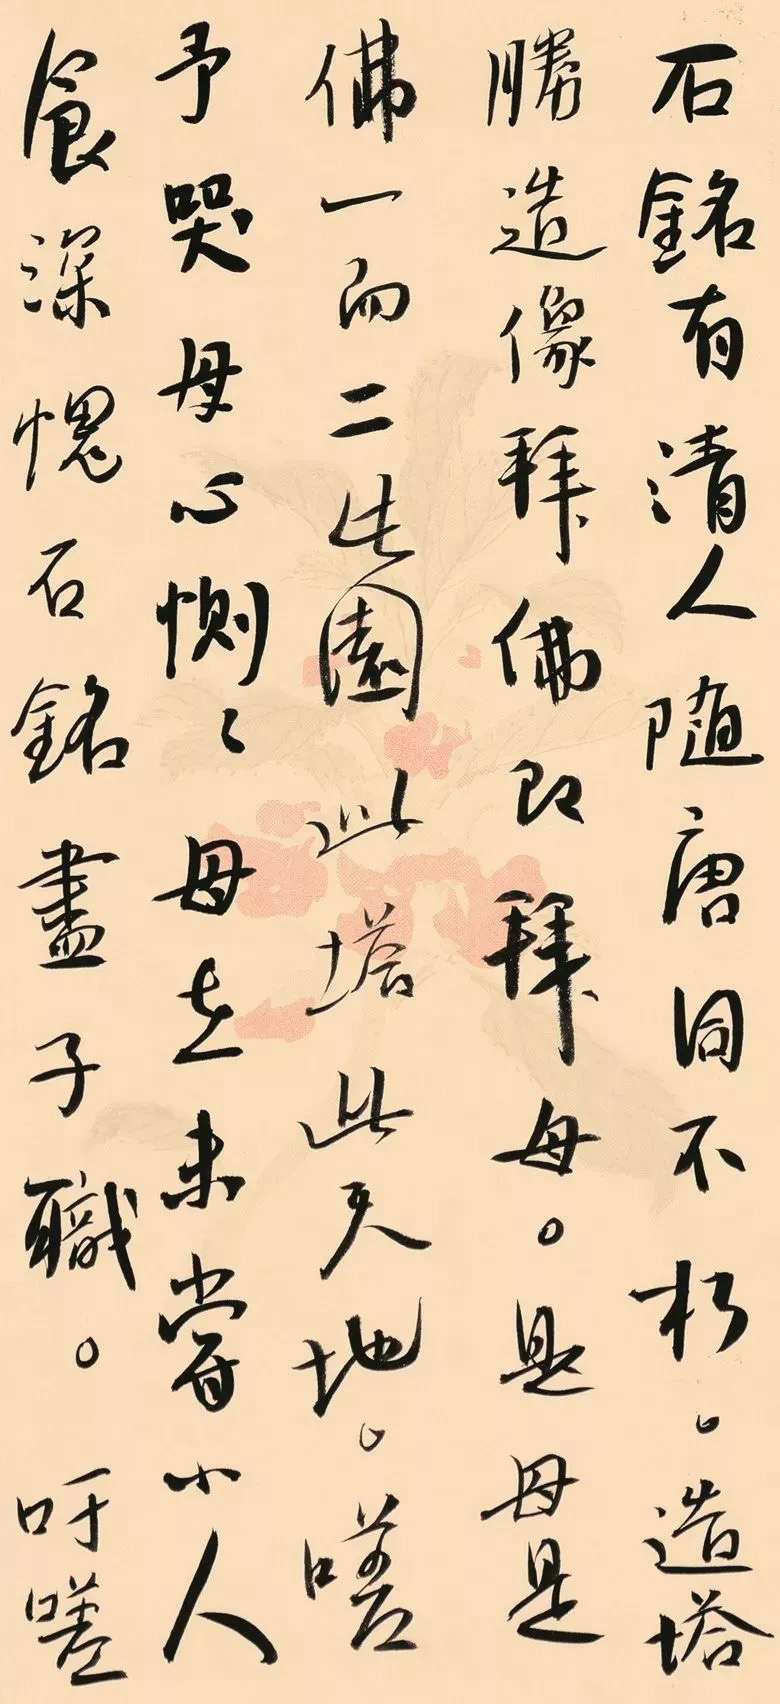 石銘有清人隨唐同不朽。造塔
勝造像拜佛即拜母。是母是
佛一而二此園此塔此天地。嗟
予哭母心惻〻母在未嘗小人
食深愧石銘盡子職。吁嗟